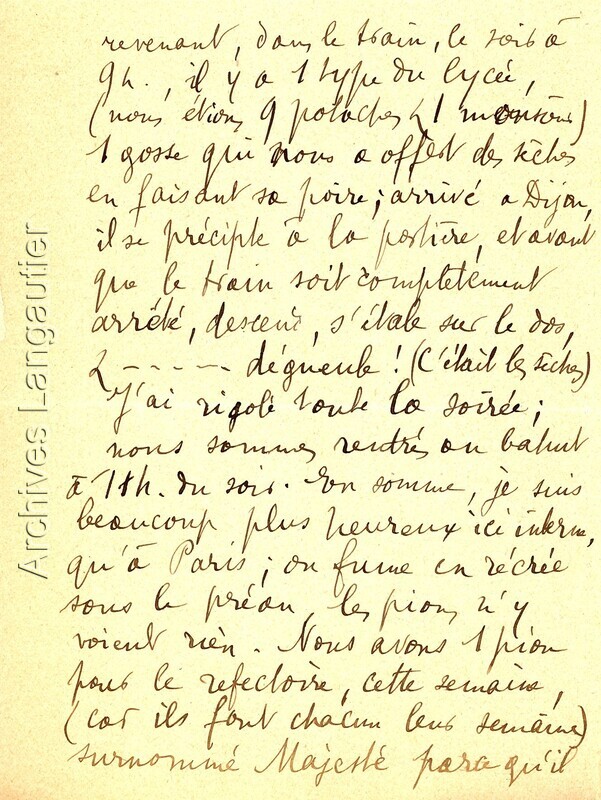 revenant, dans le train, le soir à
9h., il y a 1 type du lycée,
(nous étions 9 potaches & 1 monsieur)
1 gosse qui nous a offert des sèches
en faisant sa poire ; arrivé a Dijon,
il se précipite à la portière, et avant
que le train soit complètement
arrêté, descend, s'étale sur le dos,
& - - - - - dégueule ! (C'était les sèches)
J'ai rigolé toute la soirée ;
nous sommes rentrés au bahut
à 11h. du soir. En somme, je suis
beaucoup plus heureux ici interne,
qu'à Paris ; on fume en récrée
sous le préau, les pions n'y
voient rien. Nous avons 1 pion
pour le refectoire, cette semaine,
(car ils font chacun leur semaine)
surnommé Majesté parce qu'il
Archives Langautier